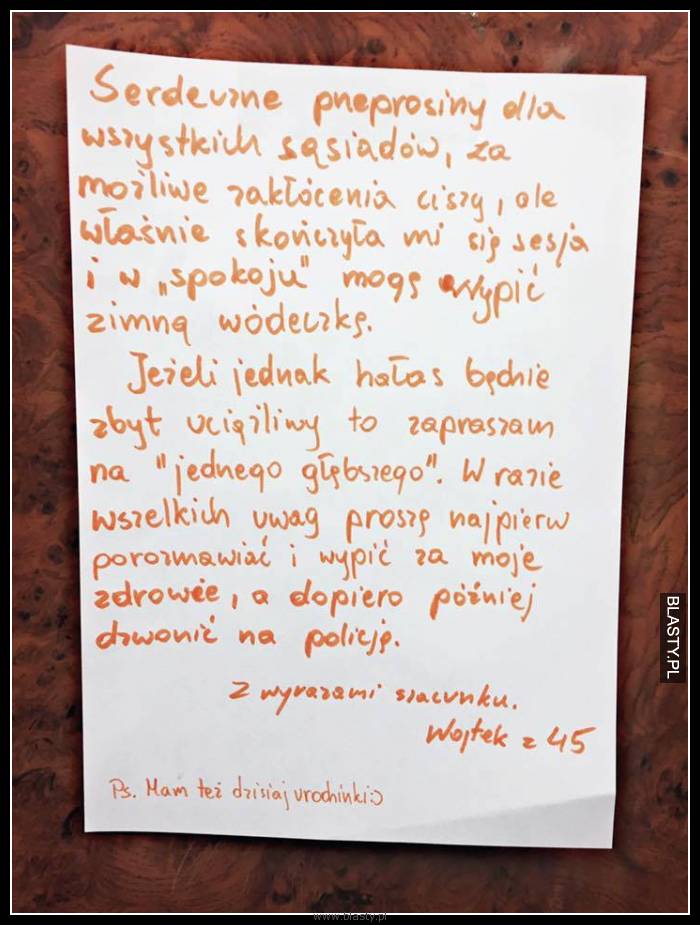 Serdeczne przeprosiny dla
wszystkich sąsiadów, za
możliwe zakłócenia ciszy, ale
właśnie skończyła mi się sesja
i w „spokoju" mogę wypić
zimną wódeczkę.
Jeżeli jednak hałas będzie
zbyt uciążliwy to zapraszam
na "jednego głębszego". W razie
wszelkich uwag proszę najpierw
porozmawiać i wypić za moje
zdrowie, a dopiero później
dzwonić na policję.
Z wyrazami szacunku.
Wojtek z 45
Ps. Mam też dzisiaj urodzinki:)
BLASTY.PL
www.blasty.pl